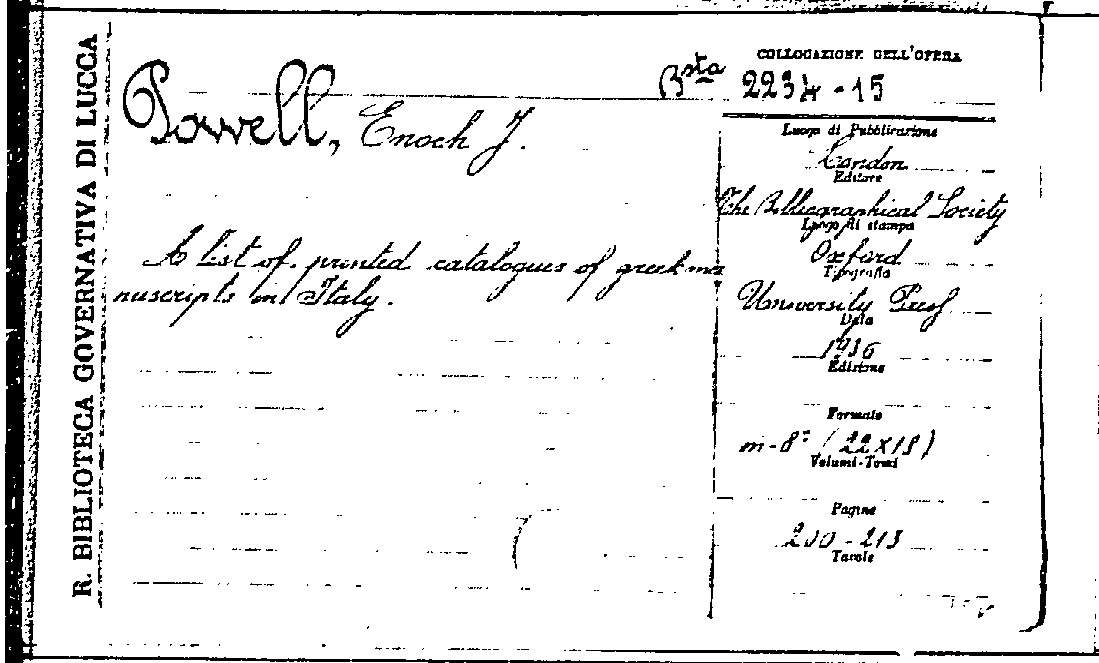 R. BIBLIOTECA GOVERNATIVA DI LUCCA
COLLOCAZIONE DELL'OPERA
Bsta 2234-15
Powell, Enoch J.
A list of printed catalogues of greek ma
nuscripts in Italy.
Luogo di Pubblicazione
London
Editore
The Bibliographical Society
Luogo di stampa
Oxford
Tipografia
University Press
Data
1936
Edizione
Formato
in-8° (22×18)
Volumi-Tomi
Pagine
200-213
Tavole